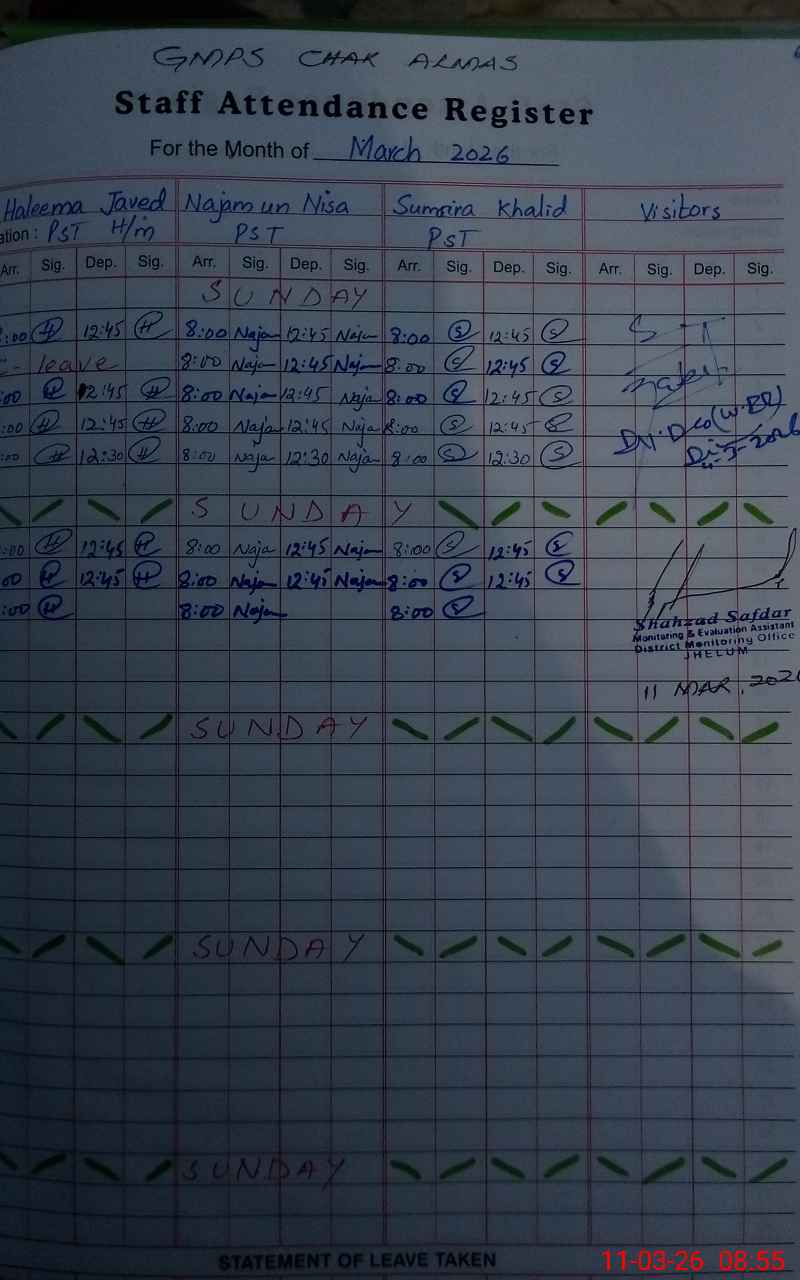 GMPS CHAK ALMAS
Staff Attendance Register
For the Month of March 2026
Haleema Javed Najam un Nisa Sumaira Khalid Visitors
ation : PST H/m PST PST
Arr. Sig. Dep. Sig. Arr. Sig. Dep. Sig. Arr. Sig. Dep. Sig. Arr. Sig. Dep. Sig.
SUNDAY
:00 H 12:45 H 8:00 Naja 12:45 Naja 8:00 S 12:45 S
leave 8:00 Naja 12:45 Naja 8:00 S 12:45 S
:00 H 12:45 H 8:00 Naja 12:45 Naja 8:00 S 12:45 S
:00 H 12:45 H 8:00 Naja 12:45 Naja 8:00 S 12:45 S
:00 H 12:30 H 8:00 Naja 12:30 Naja 8:00 S 12:30 S
SUNDAY
:00 H 12:45 H 8:00 Naja 12:45 Naja 8:00 S 12:45 S
00 H 12:45 H 8:00 Naja 12:45 Naja 8:00 S 12:45 S
:00 H 8:00 Naja 8:00 S
Shahzad Safdar
Monitoring & Evaluation Assistant
District Monitoring Office
JHELUM
11 MAR. 202
SUNDAY
SUNDAY
SUNDAY
STATEMENT OF LEAVE TAKEN
11-03-26 08:55